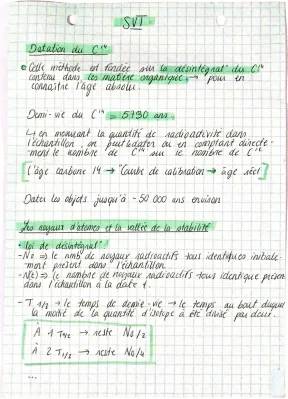 SVT
Datation du C14
• Cette méthode est fondée sur la désintégrat° du C14
contenu dans les matière organique. → pour en
connaître l'âge absolu.
Demi-vie du C14 = 5730 ans.
↳ en mesurant la quantité de radioactivité dans
l'échantillon, on peut dater ou en comptant directe-
ment le nombre de C14 sur le nombre de C12
[L'âge carbone 14 → "Courbe de calibration → âge réel]
Dater les objets jusqu'à -50 000 ans environ
Les noyaux d'atomes et la vallée de la stabilité
• loi de désintégrat° :
- No => le nmb de noyaux radioactifs tous identiques initiale-
ment présent dans l'échantillon.
- N(t) => le nombre de noyaux radioactifs tous identique présen
dans l'échantillon à la date t.
- T 1/2 → le temps de demie-vie → le temps au bout duquel
la moitié de la quantité d'isotope a été divisé par deux.
À 1 T1/2 → reste No/2
À 2 T1/2 → reste No/4
...